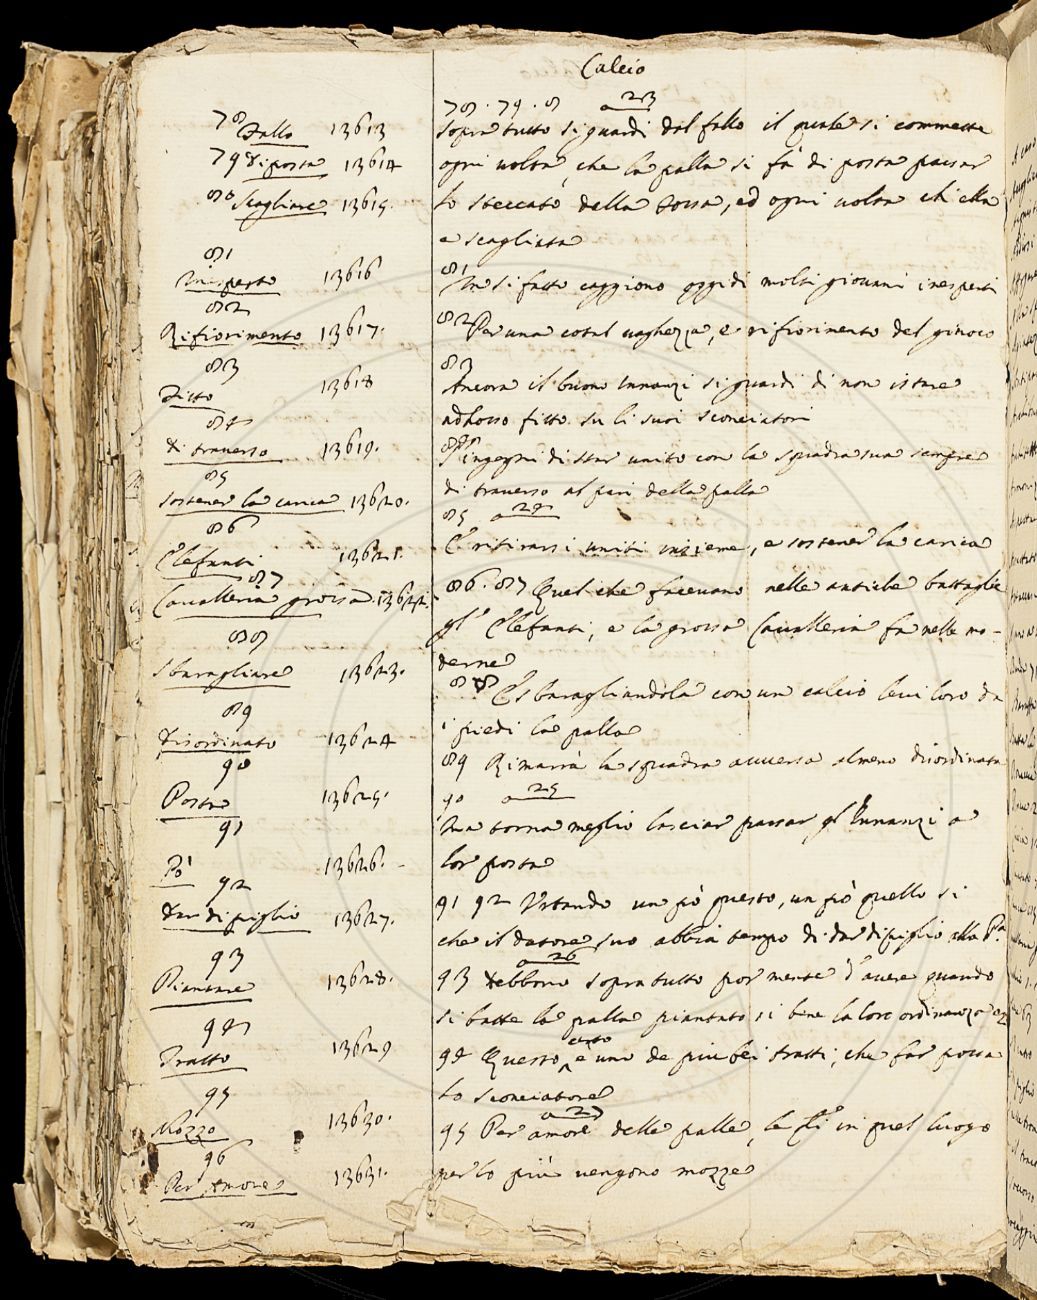 Calcio
78 Fallo 13613
79 di posta 13614
80 Scagliare 13615.
81
Inesperto 13616
82
Rifiorimento 13617.
83
Fitto 13618
84
di traverso 13619.
85
sostener la carica 13620.
86
Elefanti 13621.
87
Cavalleria grossa 13622.
88
Sbaragliare 13623.
89
Disordinato 13624
90
Posta 13625.
91
Pò 13626.
92
Dar di piglio 13627.
93
Piantare 13628.
94
Tratto 13629
95
Mozzo 13630.
96
Per Amore 13631.
78. 79. 8 a 23
sopra tutto si guardi dal fallo il quale si commette
ogni uolta, che la palla si fà di posta passar
lo steccato della fossa, ed ogni uolta ch'ella
e scagliata
81
In sì fatto caggiono oggidì molti giouani inesperti
82 Per una cotal uaghezza, e rifiorimento del giuoco
83
Ancora il buono Innanzi si guardi di non istare
adhosso fitto su li suoi sconciatori
84
s'ingegni di star unito con la squadra sua sempre
di trauerso al pari della palla
85 a 24
E ritirarsi uniti insieme, e sostener la carica
86. 87 Quel che faceuano nelle antiche battaglie
gl' Elefanti, e la grossa Caualleria fa nelle mo-
derne
88 E sbaragliandola con un calcio leui loro da
i piedi la palla
89 Rimarrà la squadra auuersa almeno disordinata
90 a 25
Ma torna meglio lasciar passar gl' Innanzi a
lor posta
91 92 Vrtando un pò questo, un pò quello si
che il datore suo abbia tempo di dar di piglio alla Pa
a 26
93 Debbono sopra tutto por mente d'auere quando
si batte la palla piantato si bene la loro ordinanza
94 Questo certo è uno de piu bei tratti, che far possa
lo sconciatore
a 27
95 Per amore delle palle, le qli in quel luogo
per lo più uengono mozze